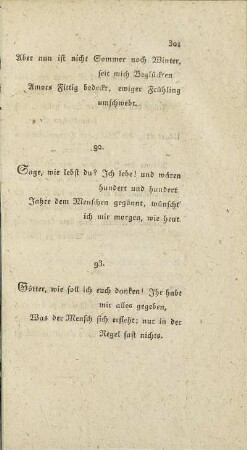 301
Aber nun ist nicht Sommer noch Winter,
seit mich Beglückten
Amors Fittig bedeckt, ewiger Frühling
umschwebt.
92.
Sage, wie lebst du? Ich lebe! und wären
hundert und hundert
Jahre dem Menschen gegönnt, wünscht'
ich mir morgen, wie heut.
93.
Götter, wie soll ich euch danken! Ihr habt
mir alles gegeben,
Was der Mensch sich erfleht; nur in der
Regel fast nichts.